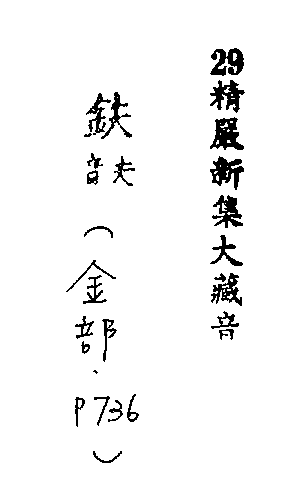 29精嚴新集大藏音
鈇音夫(金部.P736)